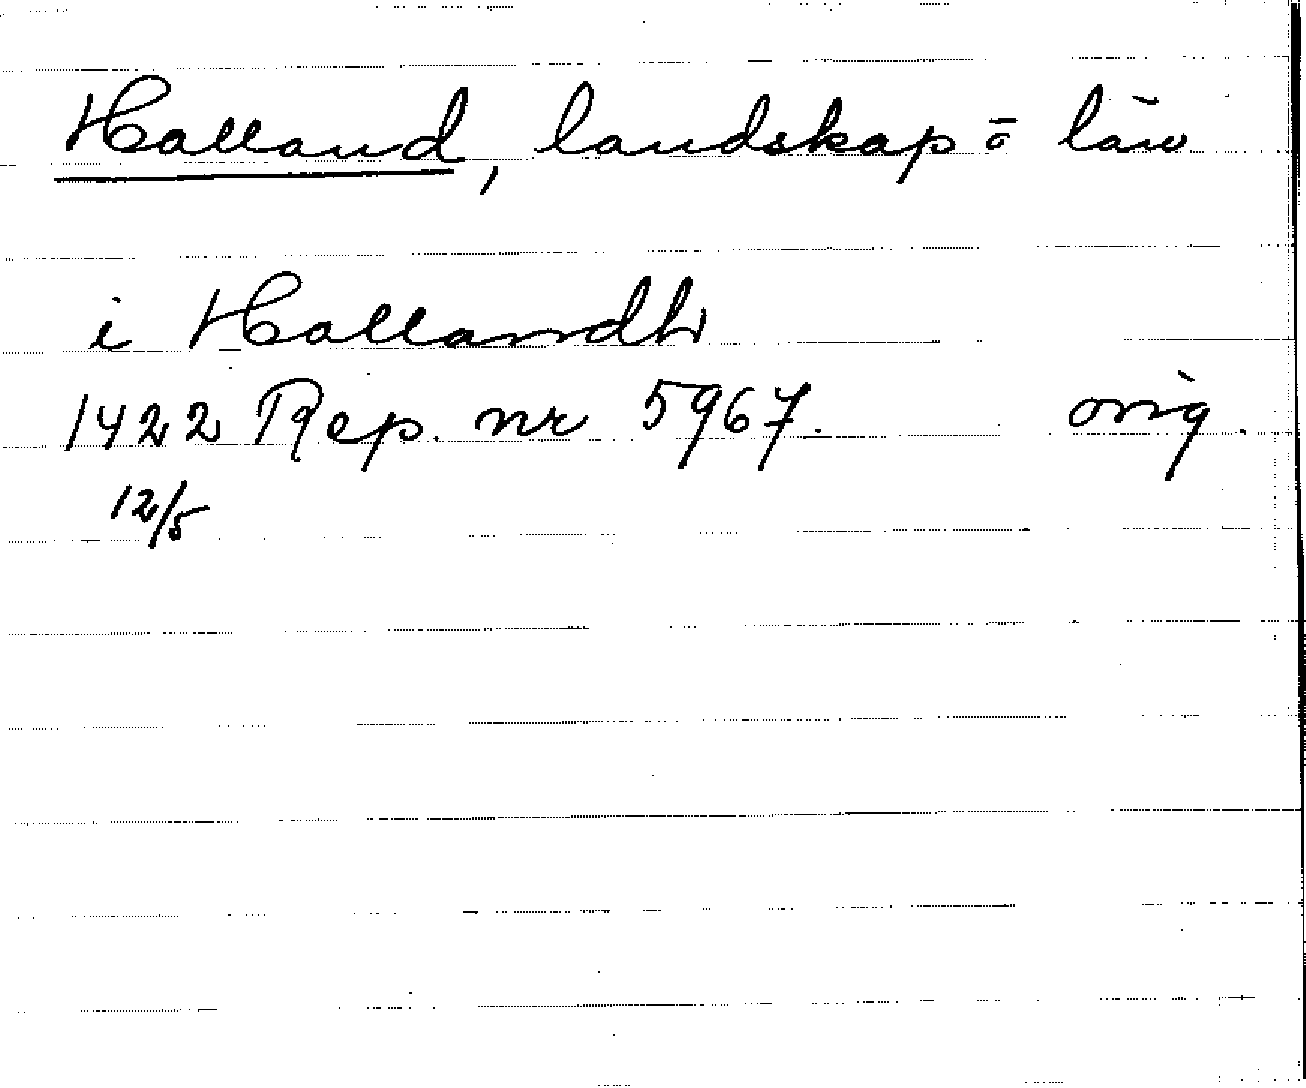 Halland, landskap o län
i Hallandh
1422 Rep. nr 5967. orig.
12/5